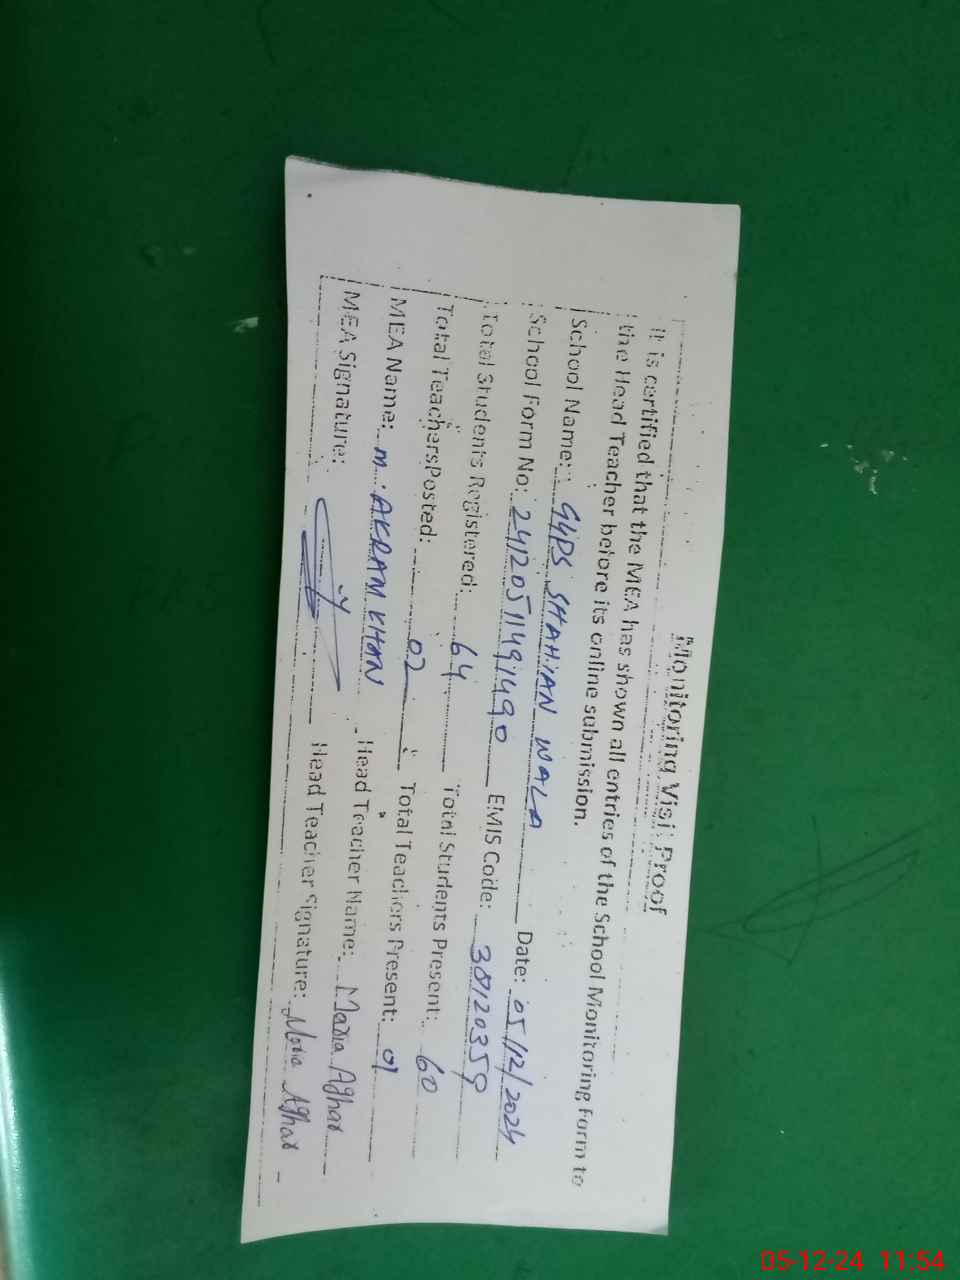 Monitoring Visit Proof
It is certified that the MEA has shown all entries of the School Monitoring Form to
the Head Teacher before its online submission.
School Name: GGPS SHAHIAN WALA Date: 05/12/2024
School Form No: 24120511491490 EMIS Code: 38120359
Total Students Registered: 64 Total Students Present: 60
Total Teachers Posted: 02 Total Teachers Present: 01
MEA Name: M. AKRAM KHAN Head Teacher Name: Maria Aghar
MEA Signature: Head Teacher Signature: Maria Aghar
05-12-24 11:54